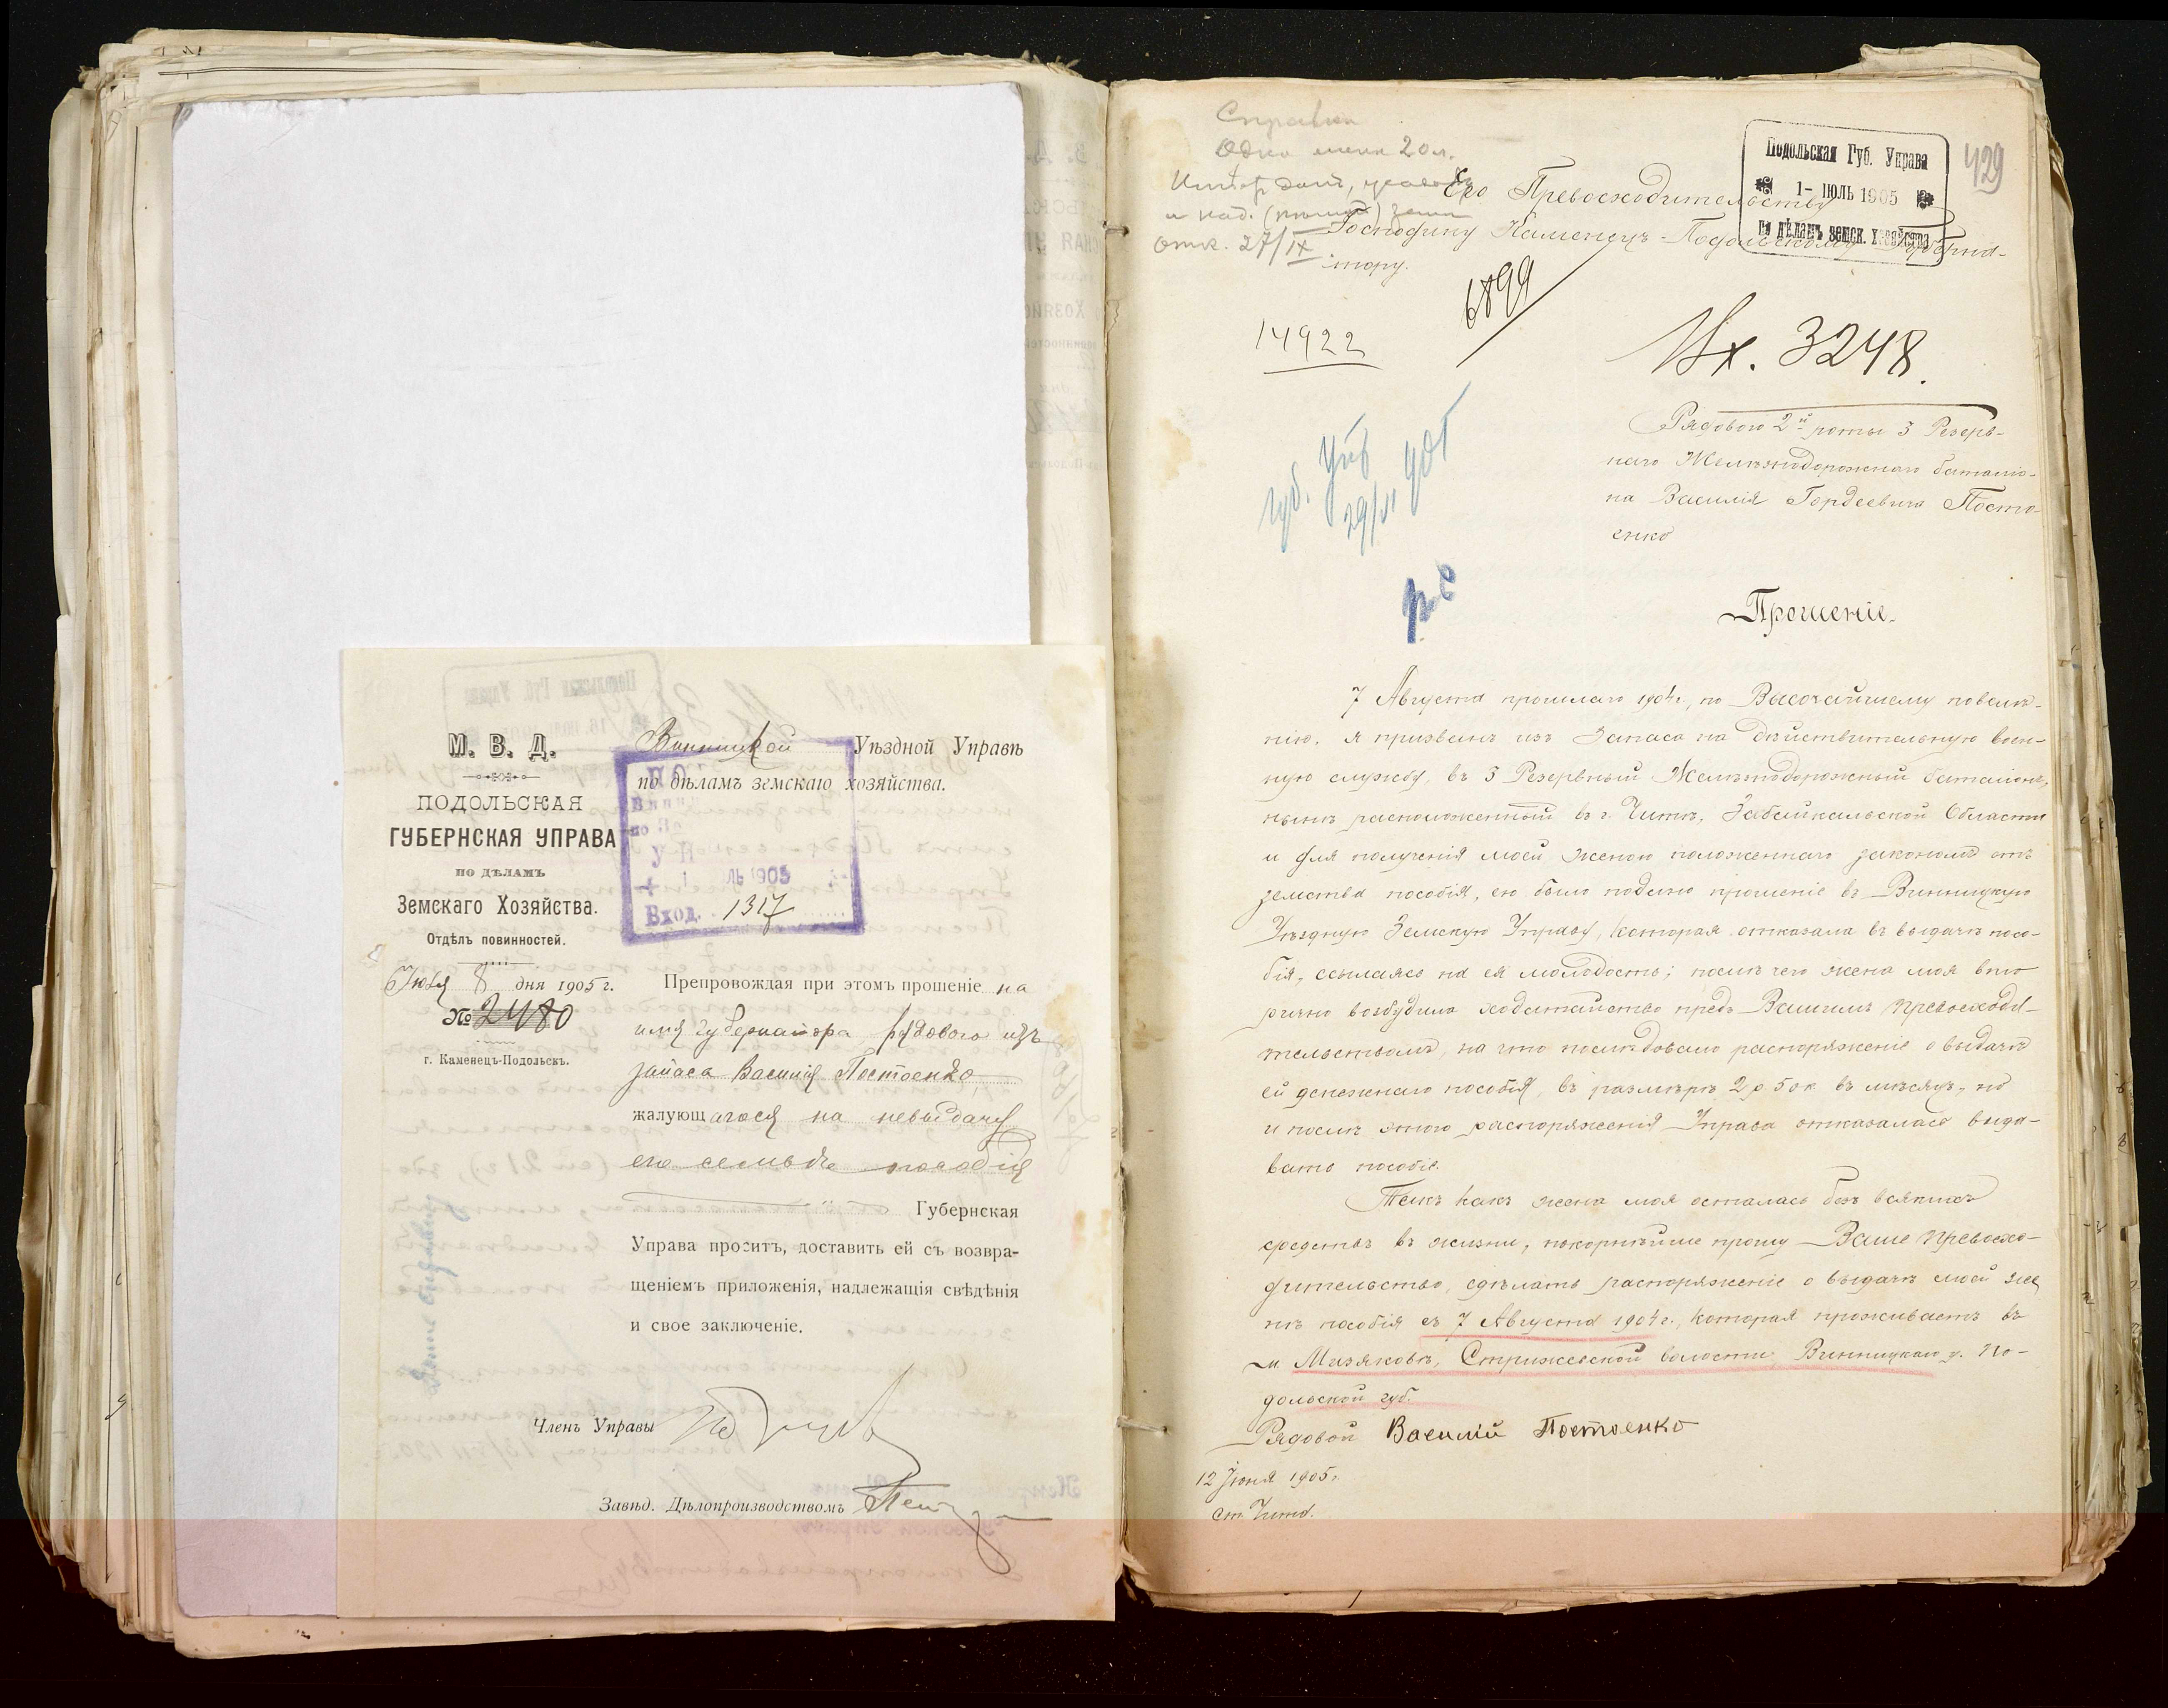 М. В. Д.
ПОДОЛЬСКАЯ
ГУБЕРНСКАЯ УПРАВА
ПО ДѢЛАМЪ
Земскаго Хозяйства.
Отдѣлъ повинностей.
Іюля 8 дня 1905 г.
№ 2480
г. Каменецъ-Подольскъ.
Винницкой Уѣздной Управѣ
по дѣламъ земскаго хозяйства.
ЛЬ 1905
Вход. 1317
Препровождая при этомъ прошеніе на
имя Губернатора рядового изъ
запаса Василія Постоенко,
жалующагося на невыдачу
его семьѣ пособія
Губернская
Управа проситъ, доставить ей съ возвра-
щеніемъ приложенія, надлежащія свѣдѣнія
и свое заключеніе.
Членъ Управы
Завѣд. Дѣлопроизводствомъ
Справка
Одна жена 20 л.
отк. 27/IX
Подольская Губ. Управа
1- ІЮЛЬ 1905
по дѣламъ земск. хозяйства
429
Его Превосходительству
Господину Каменецъ-Подольскому Губерна-
тору.
14922
6899
Вх. 3248.
Рядового 2й роты 3 Резерв-
наго Желѣзнодорожнаго баталіо-
на Василія Гордеевича Посто-
енко
Губ. Упр
29/VI 905
Прошеніе.
7 Августа прошлаго 1904 г., по Высочайшему повелѣ-
нію, я призванъ изъ Запаса на дѣйствительную воен-
ную службу, въ 3 Резервный Желѣзнодорожный баталіонъ,
нынѣ расположенный въ г. Читѣ, Забайкальской Области
и для полученія моей женою положеннаго закономъ отъ
земства пособія, ею было подано прошеніе въ Винницкую
Уѣздную Земскую Управу, которая отказала въ выдачѣ посо-
бія, ссылаясь на ея молодость; послѣ чего жена моя вто
рично возбудила ходатайство предъ Вашимъ Превосходи-
тельствомъ, на что послѣдовало распоряженіе о выдачѣ
ей денежнаго пособія, въ размѣрѣ 2 р 50 к въ мѣсяцъ, но
и послѣ этого распоряженія Управа отказалась выда-
вать пособіе.
Такъ какъ жена моя осталась безъ всякихъ
средствъ въ жизни, покорнѣйше прошу Ваше Превосхо-
дительство, сдѣлать распоряженіе о выдачѣ моей же
нѣ пособія съ 7 Августа 1904 г., которая проживаетъ въ
м. Мизяковѣ, Стрижевской волости Винницкаго у. По-
дольской губ.
Рядовой Василій Постоенко
12 Іюня 1905 г.
ст. Чита.